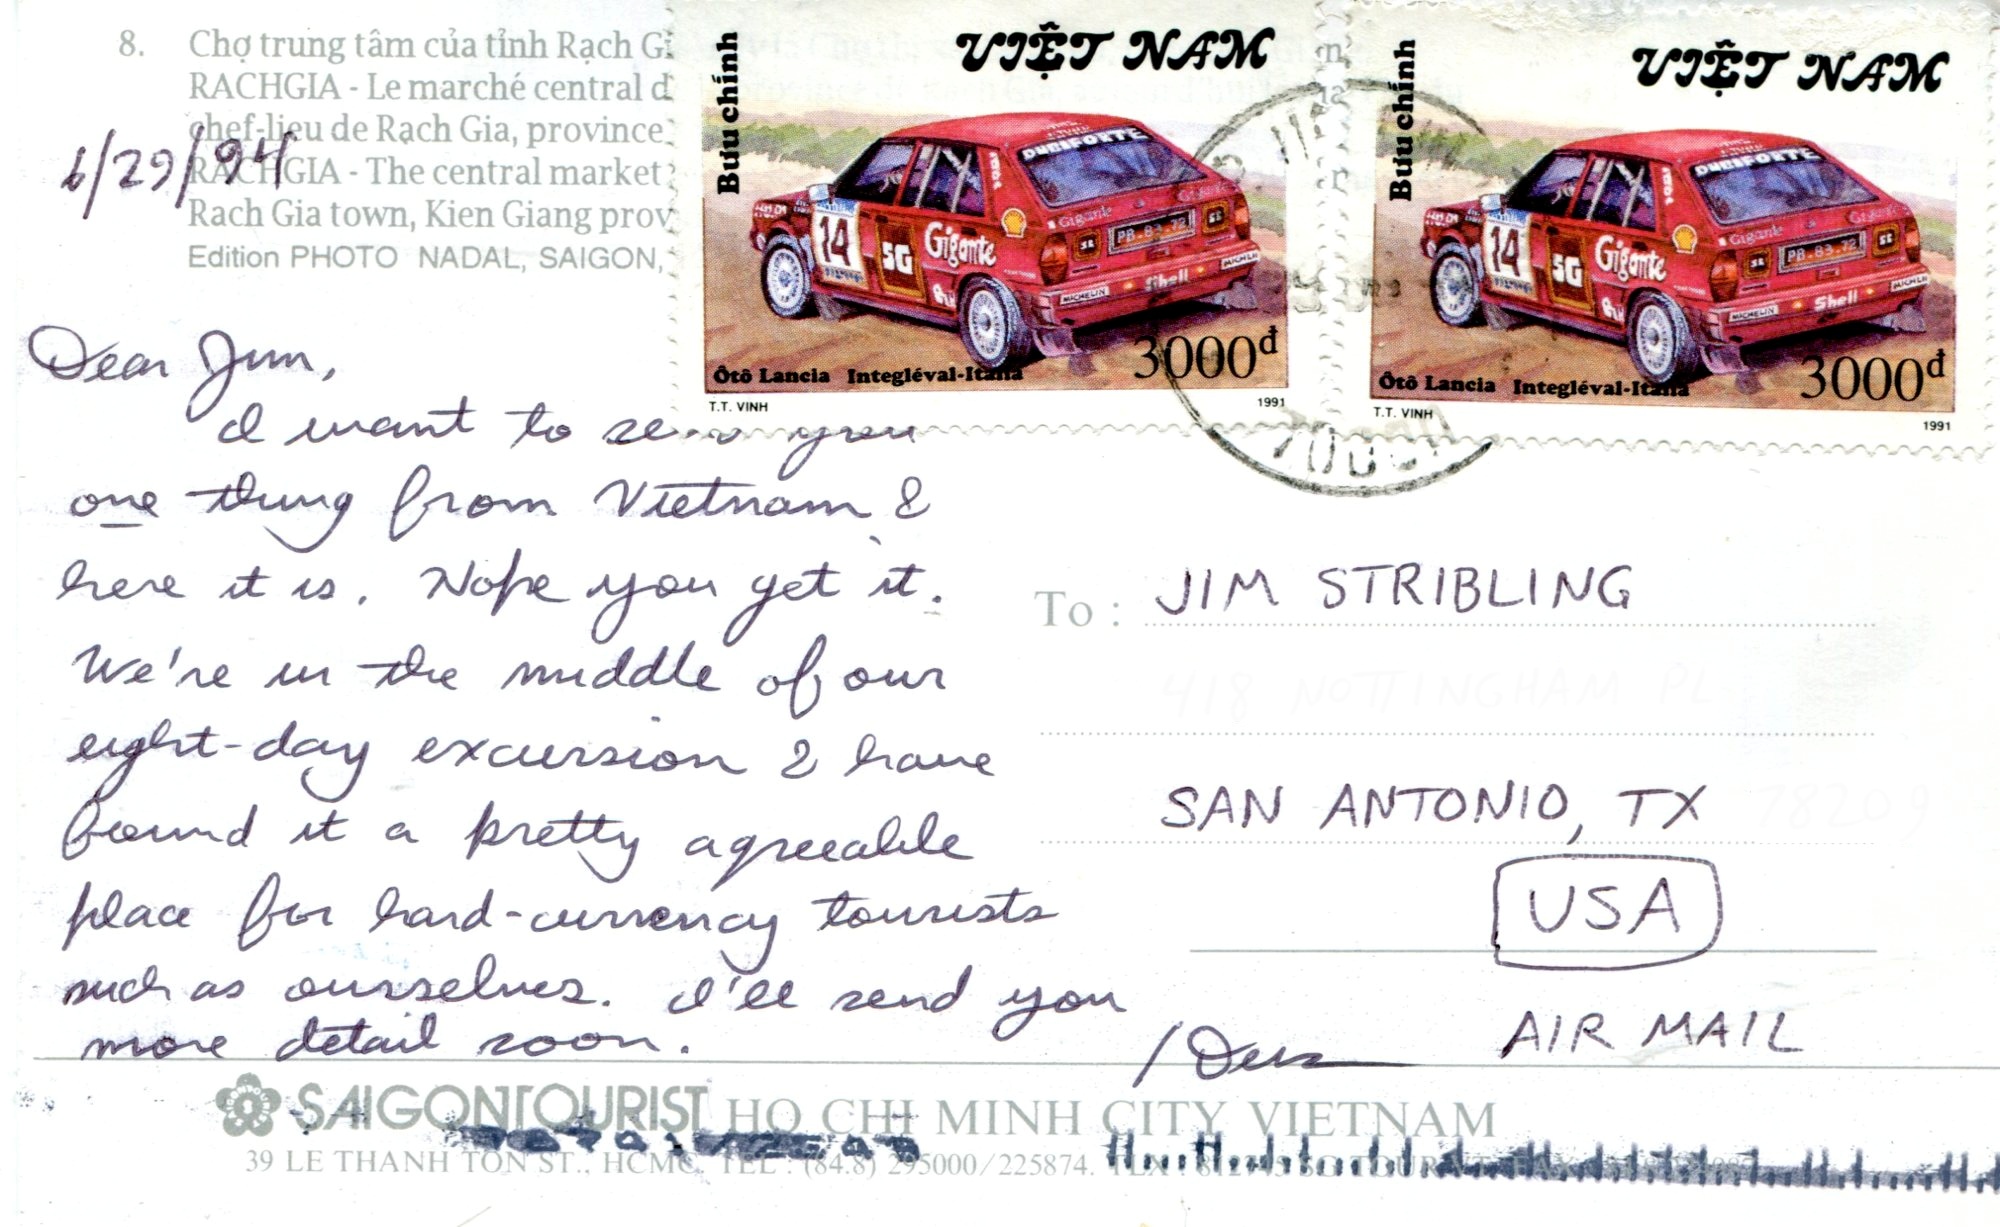 8. Chợ trung tâm của tỉnh Rạch Gi
RACHGIA - Le marché central d
chef-lieu de Rạch Gia, province
RACHGIA - The central market
Rach Gia town, Kien Giang prov
Edition PHOTO NADAL, SAIGON,
6/29/94
Bưu chính
VIỆT NAM
DUNIFORTE
14
SG
Gigante
Gigante
PB-83-72
Shell
MICHELIN
3000đ
Ôtô Lancia Integléval-Italia
T.T. VINH 1991
Bưu chính
VIỆT NAM
DUNIFORTE
14
SG
Gigante
Gigante
PB-83-72
Shell
MICHELIN
3000đ
Ôtô Lancia Integléval-Italia
T.T. VINH 1991
Dear Jim,
I want to send you
one thing from Vietnam &
here it is. Nope you get it.
We're in the middle of our
eight-day excursion & have
found it a pretty agreeable
place for hard-currency tourists
such as ourselves. I'll send you
more detail soon.
To : JIM STRIBLING
418 NOTTINGHAM PL
SAN ANTONIO, TX 78209
USA
AIR MAIL
SAIGONTOURIST HO CHI MINH CITY VIETNAM
39 LE THANH TON ST., HCMC. TEL : (84.8) 295000/225874.